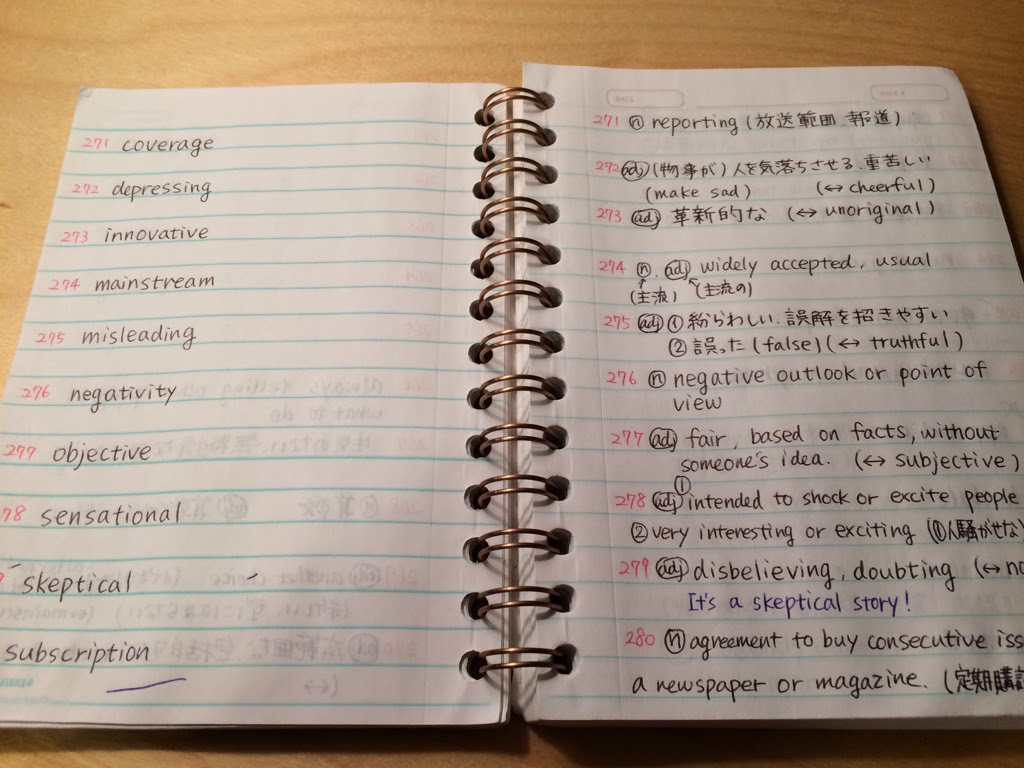 271 coverage
272 depressing
273 innovative
274 mainstream
275 misleading
276 negativity
277 objective
78 sensational
skeptical
subscription
271 n reporting (放送範囲、報道)
272 adj (物事が) 人を気落ちさせる、重苦しい
(make sad) (↔ cheerful)
273 adj 革新的な (↔ unoriginal)
274 n. adj widely accepted, usual
(主流) (主流の)
275 adj ① 紛らわしい、誤解を招きやすい
② 誤った (false) (↔ truthful)
276 n negative outlook or point of
view
277 adj fair, based on facts, without
someone's idea. (↔ subjective)
278 adj ① intended to shock or excite people
② very interesting or exciting (①人騒がせな)
279 adj disbelieving, doubting (↔
It's a skeptical story!
280 n agreement to buy consecutive iss
a newspaper or magazine. (定期購